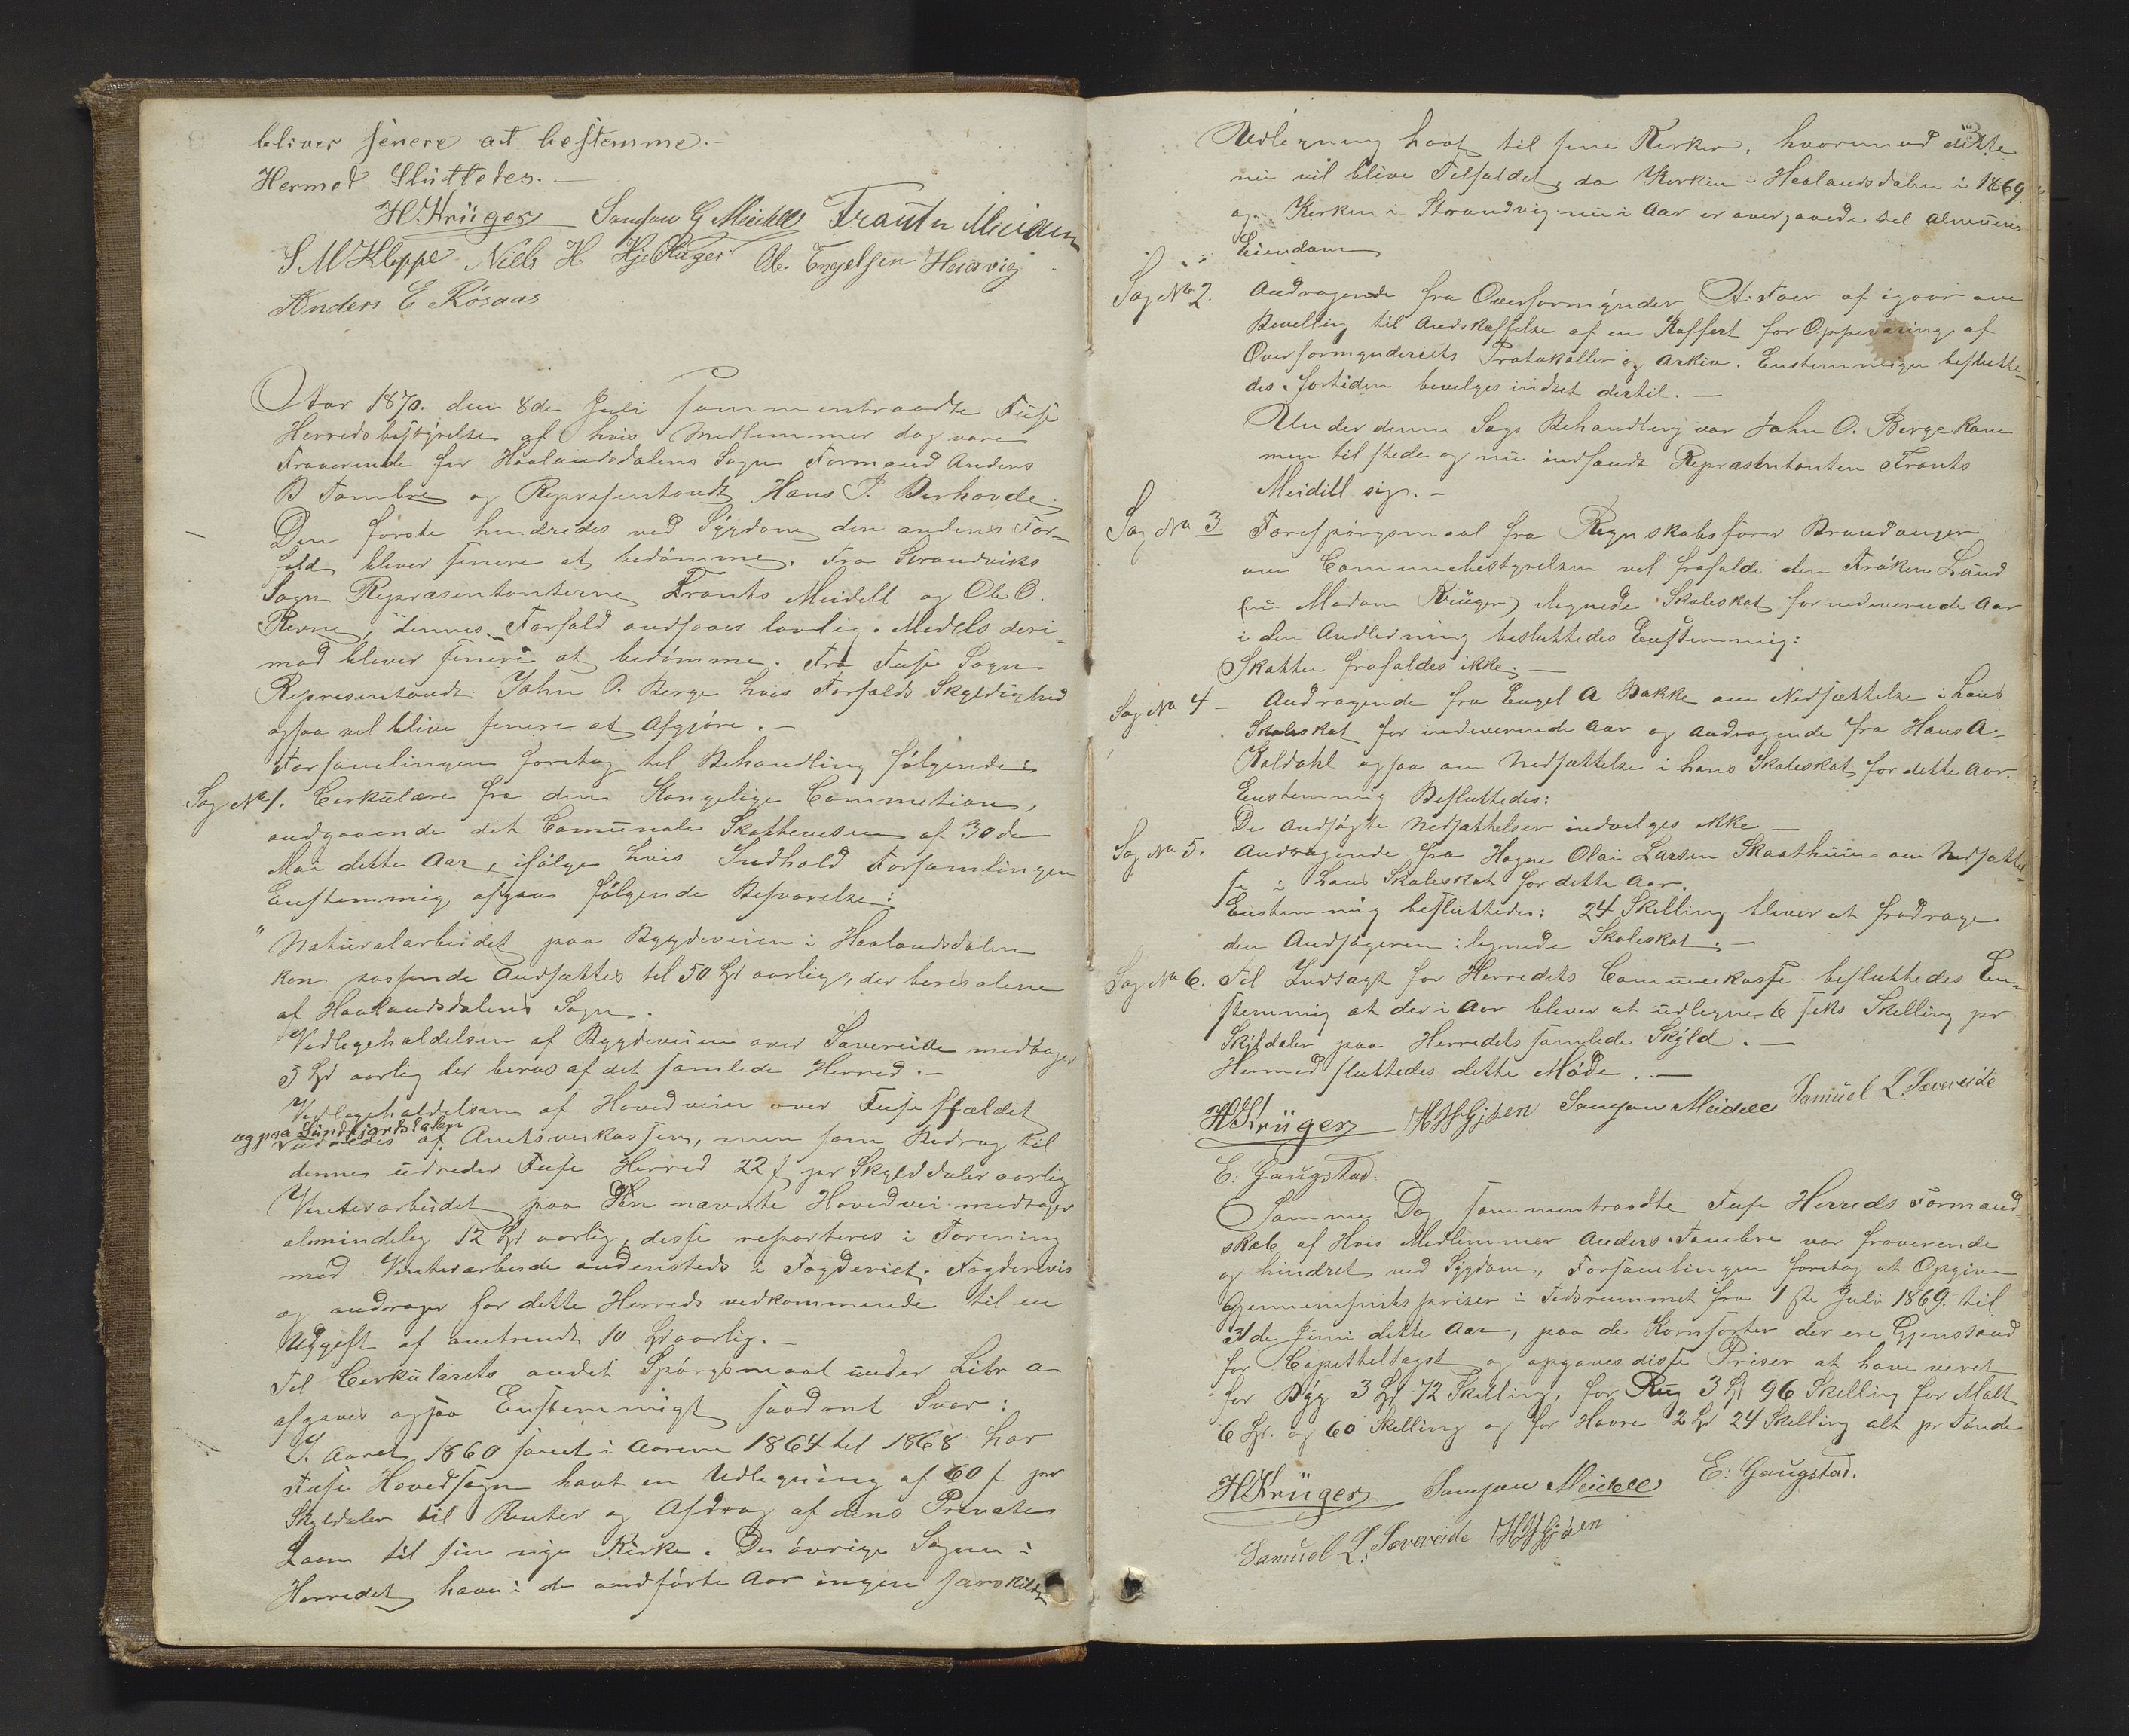 bliver senere at bestemme.-
Hermed Sluttedes.-
HKrüger Samson G Meidell Frantz Meidell
S M Kleppe Niels H. Ole Engelsen Hervig
Anders E Rösaas
Aar 1870. den 8de Juli sammentraadte Fuse
Herredsbestyrelse af hvis Medlemmer dog vare
Fraværende for Haalandsdalens Sogn Formand Anders
B Tombre og Repræsentandt Hans P. Berhovde.
Den første hindredes ved Sygdom den andens For-
fald bliver senere at bedømme. Fra Strandviks
Sogn Repræsentanterne Frants Meidell og Ole O.
Revne, dennes Forfald ansaaes lovlig. Medels deri-
mod bliver senere at bedømme. Fra Fuse Sogn
Representandt John O. Berge hvis Forfalds Skyldighed
ogsaa vil blive senere at Afgjøre.-
Forsamlingen foretog til Behandling følgende:
Sag No 1. Cirkulære fra den Kongelige Commetion,
andgaaende det Comunale Skattevesen af 30de
Mai dette Aar, ifølge hvis Indhold Forsamlingen
Enstemmig afgav følgende Besvarelse:
"Naturalarbeidet paa Bygdeveien i Haalandsdalen
kan passende Andsættes til 50 Spd aarlig, der bæres alene
af Haalandsdalens Sogn.
Vedligeholdelsen af Bygdeveien over Sævereide medtager
5 Spd aarlig der bæres af det samlede Herred.-
Vedligeholdelsen af Hovedveien over Fuse Fjældet
og paa Sundfjordsdalen
udredes af Amtsveikassen, men som Bidrag til
denne udreder Fuse Herred 22 s pr Skylddaler aarlig
Vinterarbeidet paa den nævnte Hovedvei medtager
almindelig 12 Spd aarlig, disse reparteres i Forening
med Vinterarbeide andensteds i Fogderiet, Fogderivis
og andrager for dette Herreds vedkommende til en
Udgift af omtrendt 10 Spd aarlig.-
Til Cirkulærets andet Spørgsmaal under Litr a
afgaves ogsaa Enstemmigt saadant Svar:
I Aaret 1860 samt i Aarene 1864 til 1868 har
Fuse Hovedsogn havt en Udligning af 60 s pr
Skyldaler til Renter og Afdrag af dens Private
Laan til sin nye Kirke. De øvrige Sogne i
Herredet have i de andførte Aar ingen særskildt
3
Udligning havt til sine Kirker, hvorimod dette
nu vil blive Tilfældet, da Kirken i Haalandsdalen i 1869
og Kirken i Strandvig nu i Aar er overgaaede til Almuens
Eiendom
Sag No 2. Andragende fra Overformynder A. Toer af igaar om
Bevilling til Andskaffelse af en Koffert for Oppevaring af
Overformynderiets Protokoller og Arkiv. Enstemmigen beslutte-
des. fortiden bevilges indtet dertil.-
Under denne Sags Behandling var John O. Berge kom-
men tilstede og nu indfandt Repræsentanten Frants
Meidell sig.-
Sag No 3. Forespørgsmaal fra Regnskabsfører Brandanger
om Communebestyrelsen vil frafalde den Frøken Lund
(nu Madam Krüger) ilignede Skoleskat for nedværende Aar
i den Andledning besluttedes Enstemmig:
Skatten frafaldes ikke.-
Sag No 4 - Andragende fra Engel A Bakke om Nedsættelse i hans
Skoleskat for indeværende Aar og andragende fra Hans A-
Koldahl ogsaa om Nedsættelse i hans Skoleskat for dette Aar.
Enstemmig Besluttedes:
De andsøgte Nedsættelser indvilges ikke-
Sag No 5. Andragende fra Hagne Olai Larsen Skaathuun om Nedsættel-
se i hans Skoleskat for dette Aar.
Enstemmig besluttedes: 24 Skilling bliver at fradrage
den Andsøgeren ilignede Skoleskat.-
Sag No 6. Til Indtægt for Herredets Communekasse besluttedes En-
stemmig at der i Aar bliver at udligne 6 seks Skilling pr
Skyldaler paa Herredets samlede Skyld.-
Hermed sluttedes dette Møde.-
HKrüger HHGjøen Samson Meidell Samuel L. Sævereide
E: Gaugstad.
Samme Dag sammentraadte Fuse Herreds Formand-
skab af Hvis Medlemmer Anders Tombre var fraværende
og hindret ved Sygdom, Forsamlingen foretog at Opgive
Gjennemsnitspriser i Tidsrummet fra 1ste Juli 1869. til
31de Juni dette Aar, paa de Kornsorter der ere Gjenstand
for Capitteltagst og opgaves disse Priser at have været
for Byg 3 Spd 72 Skilling, for Rug 3 Spd 96 Skilling for Malt
6 Spd. og 60 Skilling og for Havre 2 Spd 24 Skilling alt pr Tønde
HKrüger Samson Meidell E: Gaugstad.
Samuel L. Sævereide HHGjøen